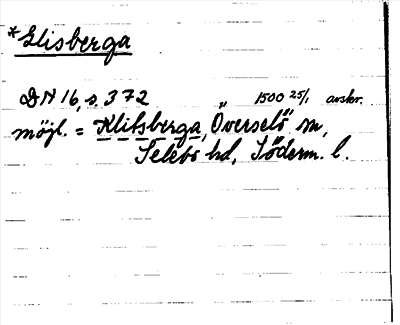 *Elisberga
DN 16, s. 372 1500 25/1 avskr.
möjl. = Klitsberga, Överselö sn,
Selebo hd, Söderm. l.